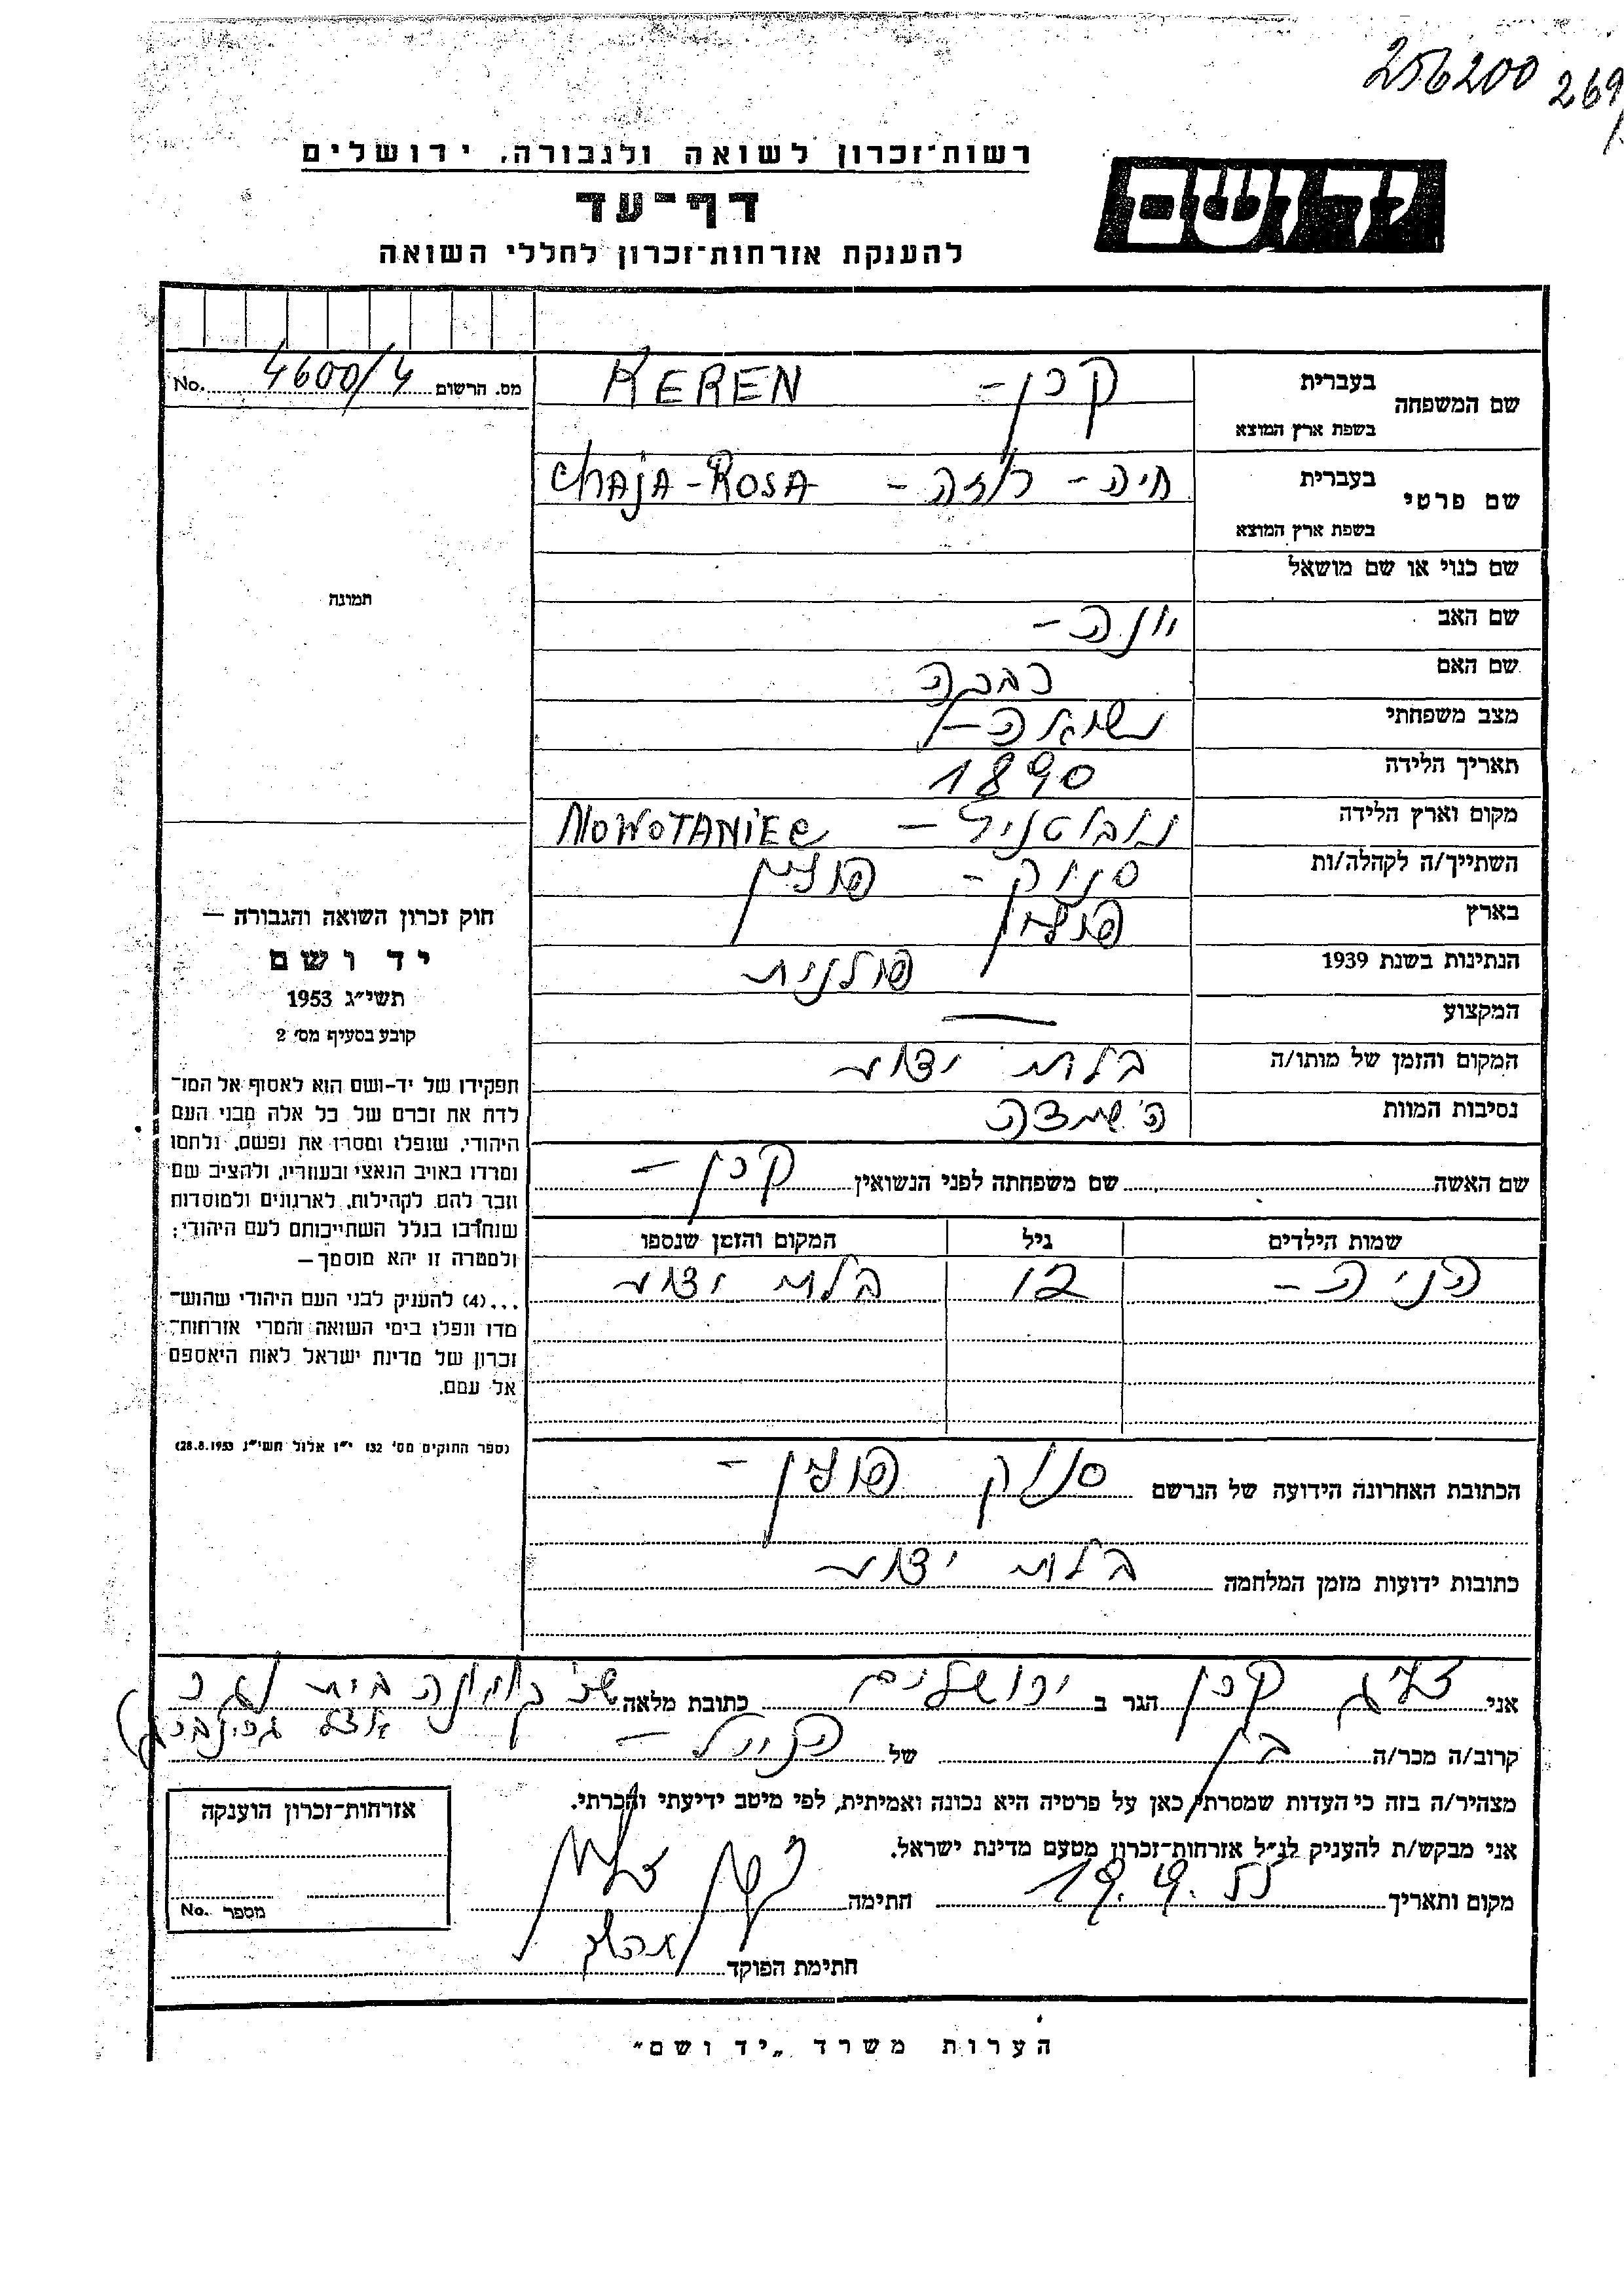 256200 269
יד ושם
רשות־זכרון לשואה ולגבורה, ירושלים
דף־עד
להענקת אזרחות־זכרון לחללי השואה
מס. הרשום 4600/4 No.
שם המשפחה
בעברית
קרן – KEREN
בשפת ארץ המוצא
שם פרטי
בעברית
חיה – רוזה – Chaja-ROSA
בשפת ארץ המוצא
שם כנוי או שם מושאל
שם האב יונה –
שם האם רבקה
מצב משפחתי נשואה –
תאריך הלידה 1890
מקום וארץ הלידה – NOWOTANIEC
השתייך/ה לקהלה/ות סנוק – פולין
בארץ פולין
הנתינות בשנת 1939 פולנית
המקצוע —
המקום והזמן של מותו/ה בלתי ידוע
נסיבות המוות השמדה
שם האשה שם משפחתה לפני הנשואין קרן –
שמות הילדים גיל המקום והזמן שנספו
הניה – 12 בלתי ידוע
הכתובת האחרונה הידועה של הנרשם סנוק פולין –
כתובות ידועות מזמן המלחמה בלתי ידוע
תמונה
חוק זכרון השואה והגבורה –
יד ושם
תשי״ג 1953
קובע בסעיף מס׳ 2
תפקידו של יד-ושם הוא לאסוף אל המו־
לדת את זכרם של כל אלה מבני העם
היהודי, שנפלו ומסרו את נפשם, נלחמו
ומרדו באויב הנאצי ובעוזריו, ולהציב שם
וזכר להם לקהילות, לארגונים ולמוסדות
שנחרבו בגלל השתייכותם לעם היהודי;
ולמטרה זו יהא מוסמך —
...(4) להעניק לבני העם היהודי שהוש־
מדו ונפלו בימי השואה והמרי אזרחות־
זכרון של מדינת ישראל לאות היאספם
אל עמם.
(ספר החוקים מס׳ 132 י״ז אלול תשי״ג 28.8.1953)
אני קרן הגר ב ירושלים כתובת מלאה
קרוב/ה מכר/ה בן של
מצהיר/ה בזה כי העדות שמסרתי כאן על פרטיה היא נכונה ואמיתית, לפי מיטב ידיעתי והכרתי.
אני מבקש/ת להעניק לנ״ל אזרחות־זכרון מטעם מדינת ישראל.
מקום ותאריך 19.9.55 חתימה
חתימת הפוקד
אזרחות־זכרון הוענקה
מספר No.
הערות משרד „יד ושם״